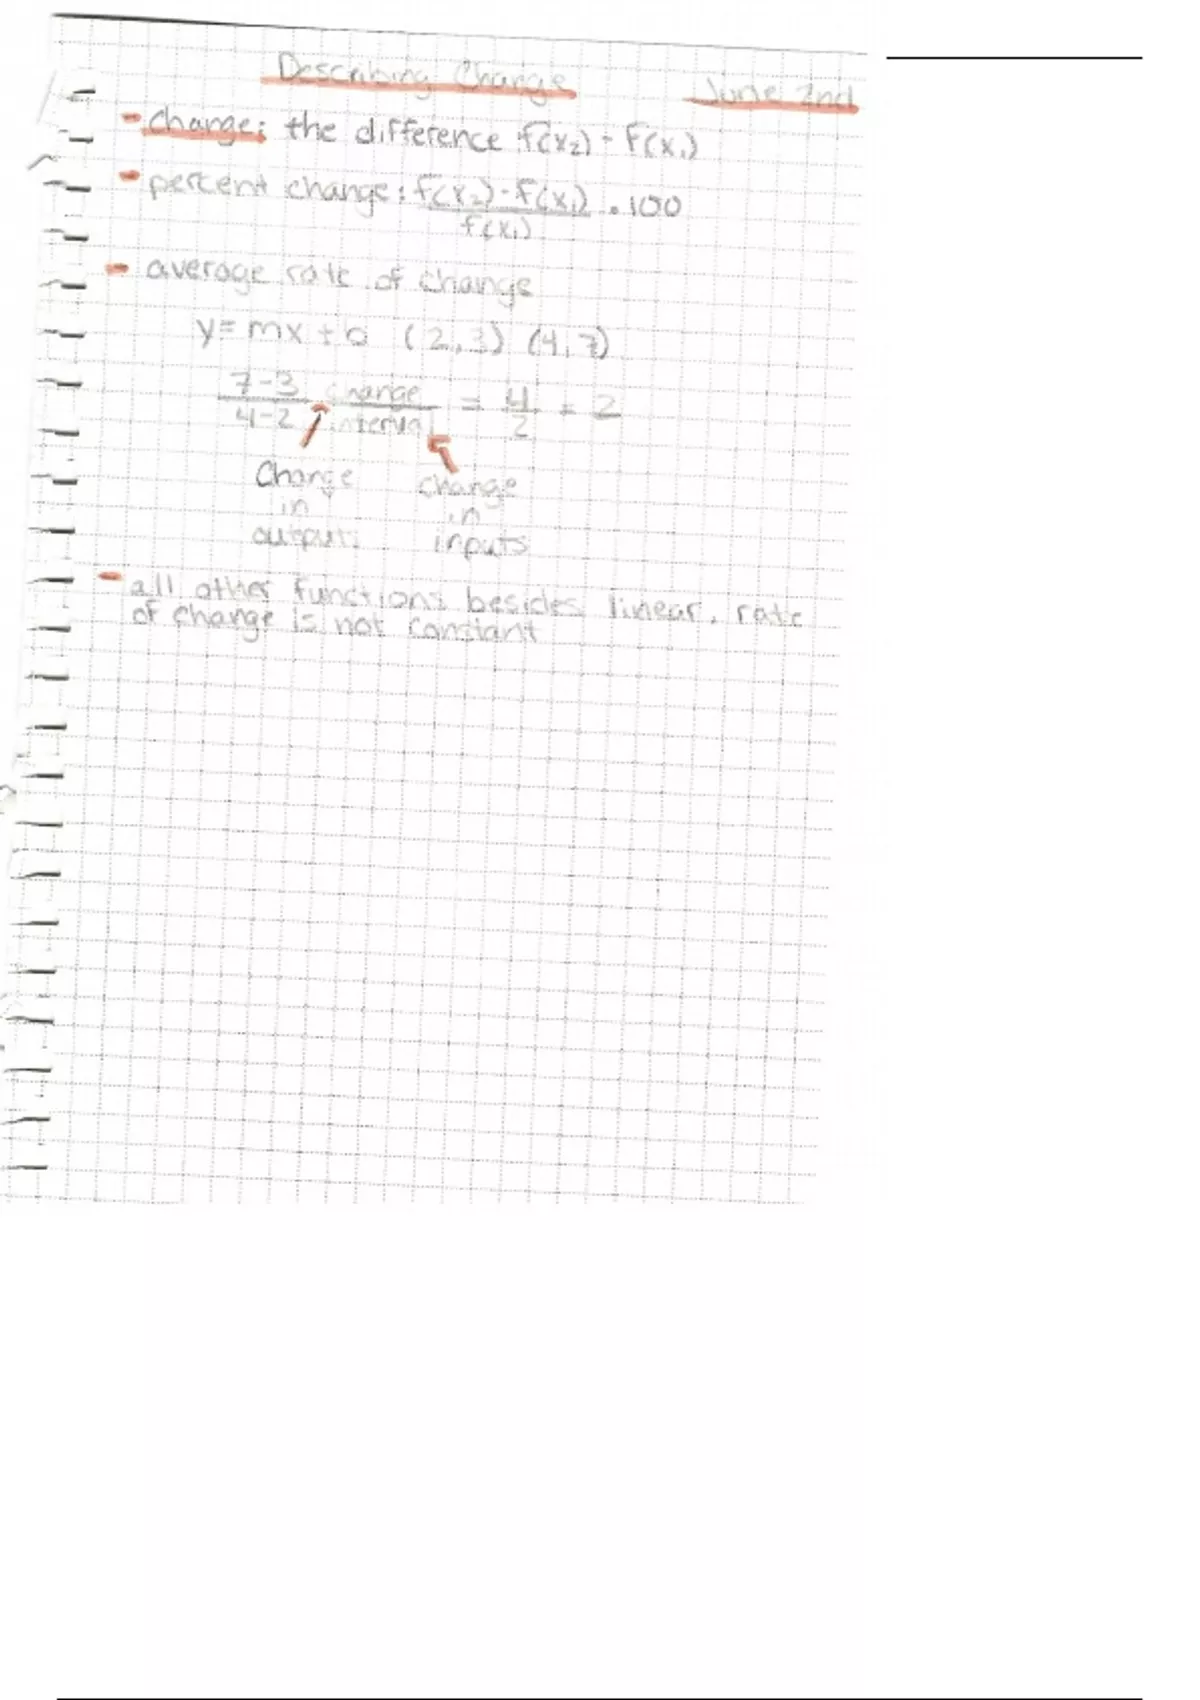 Describing Change June 2nd
- change: the difference f(x₂) - f(x₁)
- percent change: f(x₂) - f(x₁) • 100
f(x₁)
- average rate of change
y = mx + b (2,3) (4,7)
7-3 change = 4 = 2
4-2 interval 2
Change change
in in
outputs inputs
- all other functions besides linear, rate
of change is not constant